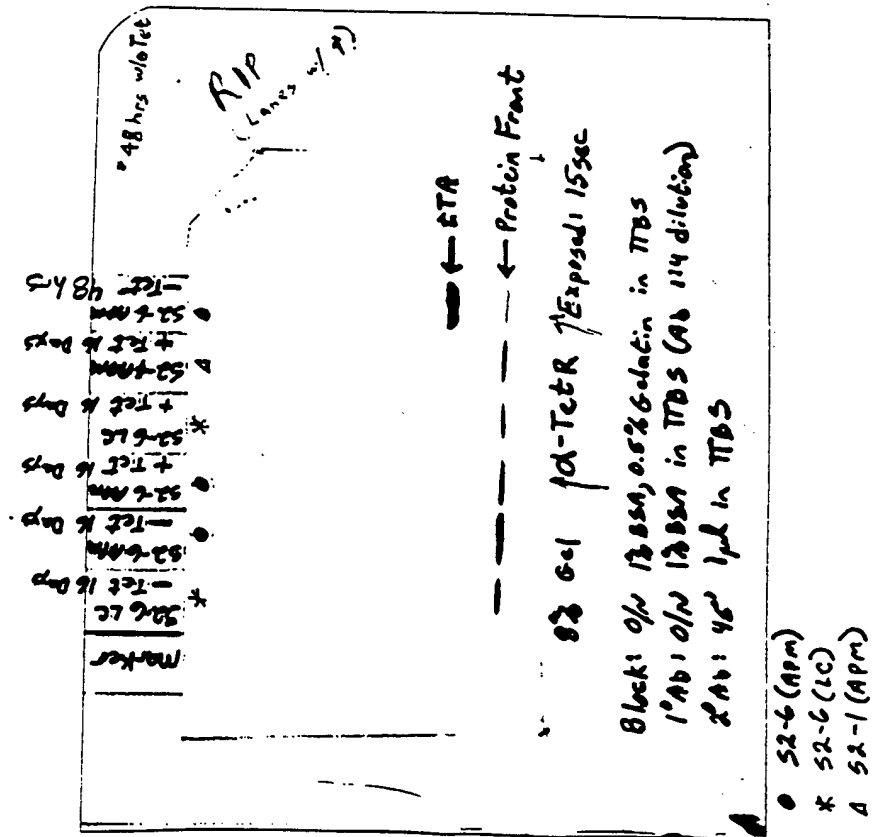 *48 hrs w/o Tet
RIP
(Lanes w/
Marker
S2-6 LC
- Tet 16 Days
*
S2-6 APM
- Tet 16 Days
●
S2-6 APM
+ Tet 16 Days
●
S2-6 LC
+ Tet 16 Days
*
S2-1 APM
+ Tet 16 Days
Δ
S2-6 APM
- Tet 48 hrs
●
← tTA
← Protein Front
8% Gel
α-TetR
Exposed: 15 sec
Block: O/N 1% BSA, 0.5% Gelatin in TTBS
1° Ab: O/N 1% BSA in TTBS (Ab 1:4 dilution)
2° Ab: 45' 1µl in TTBS
● S2-6 (APM)
* S2-6 (LC)
Δ S2-1 (APM)